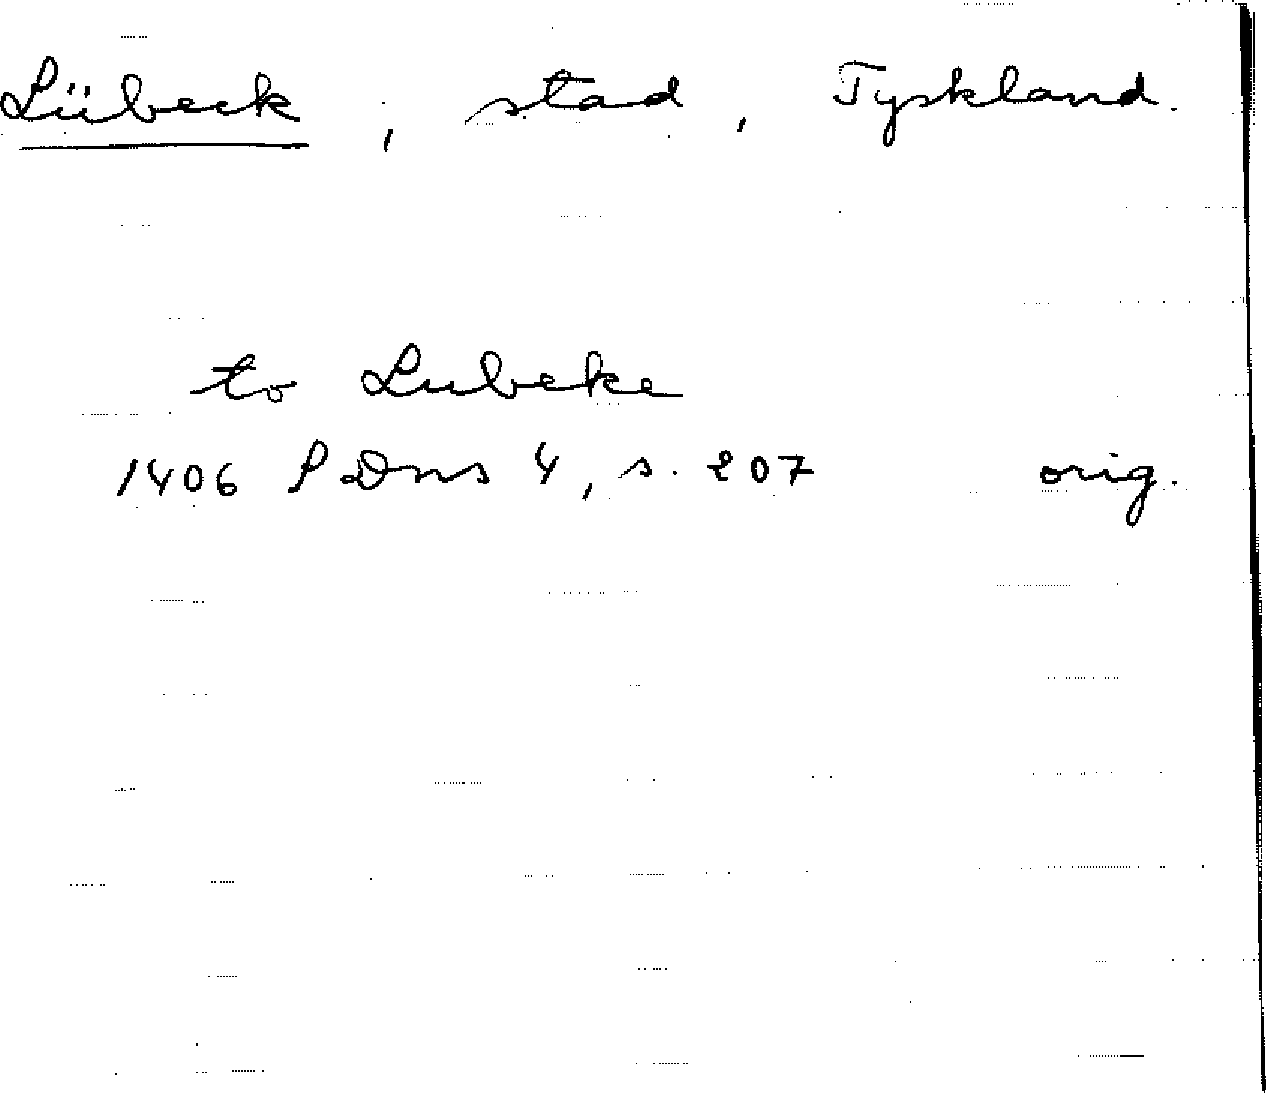 Lübeck, stad, Tyskland.
to Lubeke
1406 SDns 4, s. 207 orig.